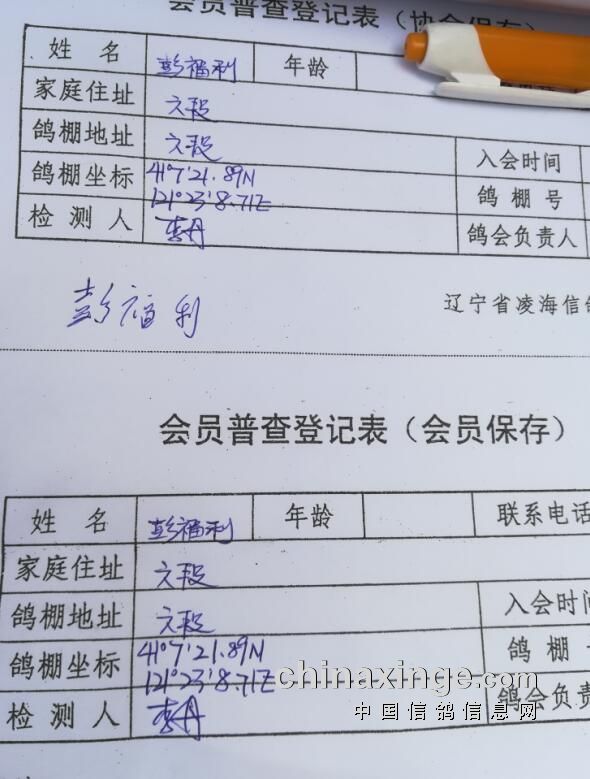 会员普查登记表（协会保存）
姓 名 彭福利 年龄
家庭住址 六段
鸽棚地址 六段 入会时间
鸽棚坐标 41°7'21.89N 121°23'8.71E 鸽 棚 号
检 测 人 李丹 鸽会负责人
彭福利
辽宁省凌海信鸽
会员普查登记表（会员保存）
姓 名 彭福利 年龄 联系电话
家庭住址 六段
鸽棚地址 六段 入会时间
鸽棚坐标 41°7'21.89N 121°23'8.71E 鸽 棚
检 测 人 李丹 鸽会负责
chinaxinge.com
中国信鸽信息网